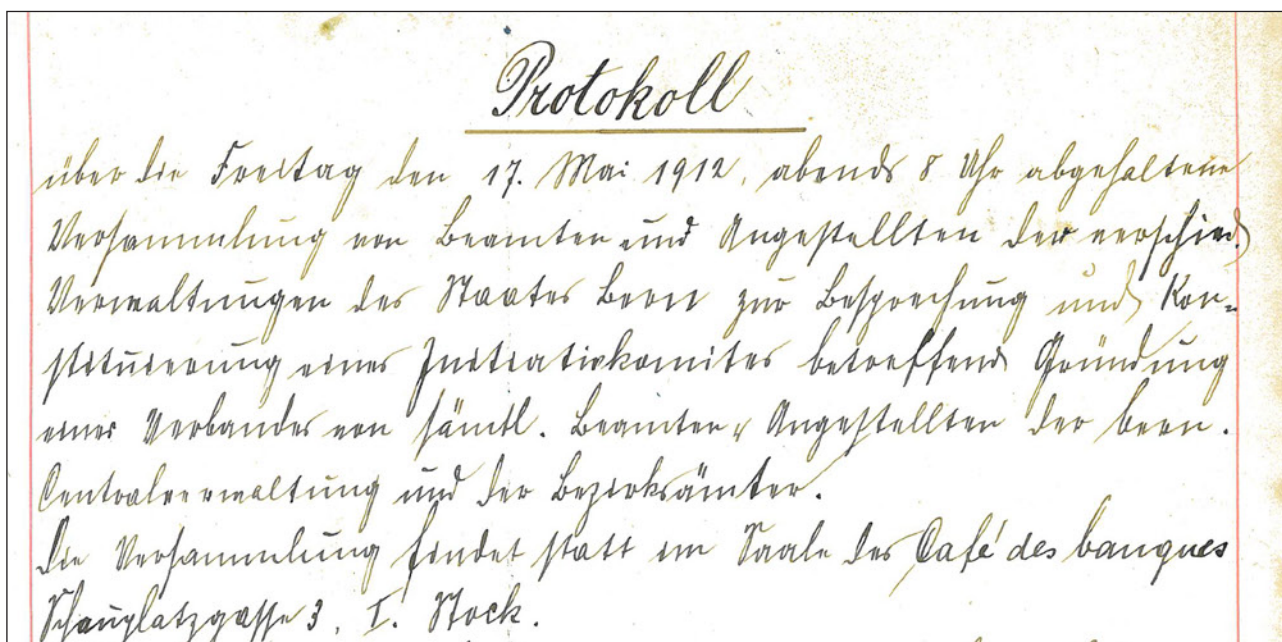 Protokoll
über die Freitag den 17. Mai 1912, abends 8 Uhr abgehaltene
Versammlung von Beamten und Angestellten der verschied.
Verwaltungen des Staates Bern zur Besprechung und Kon-
stituierung eines Initiativkomites betreffend Gründung
eines Verbandes von sämtl. Beamten & Angestellten der bern.
Centralverwaltung und der Bezirksämter.
Die Versammlung findet statt im Saale des Café des banques
Schauplatzgasse 3, I. Stock.